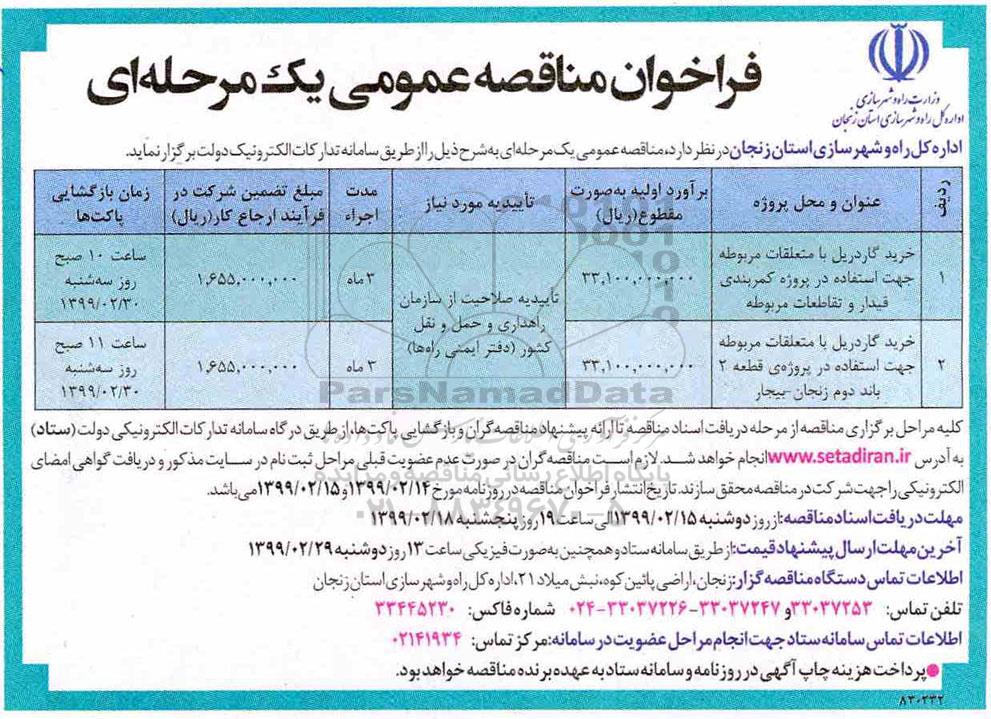 فراخوان مناقصه عمومی یک مرحله‌ای
وزارت راه و شهرسازی
اداره کل راه و شهرسازی استان زنجان
اداره کل راه و شهرسازی استان زنجان در نظر دارد، مناقصه عمومی یک مرحله‌ای به شرح ذیل را از طریق سامانه تدارکات الکترونیک دولت برگزار نماید.
ردیف
عنوان و محل پروژه
برآورد اولیه به‌صورت
مقطوع (ریال)
تأییدیه مورد نیاز
مدت
اجراء
مبلغ تضمین شرکت در
فرآیند ارجاع کار (ریال)
زمان بازگشایی
پاکت‌ها
۱
خرید گاردریل با متعلقات مربوطه
جهت استفاده در پروژه کمربندی
قیدار و تقاطعات مربوطه
۳۳,۱۰۰,۰۰۰,۰۰۰
تأییدیه صلاحیت از سازمان
راهداری و حمل و نقل
کشور (دفتر ایمنی راه‌ها)
۳ ماه
۱,۶۵۵,۰۰۰,۰۰۰
ساعت ۱۰ صبح
روز سه‌شنبه
۱۳۹۹/۰۲/۳۰
۲
خرید گاردریل با متعلقات مربوطه
جهت استفاده در پروژه‌ی قطعه ۲
باند دوم زنجان-بیجار
۳۳,۱۰۰,۰۰۰,۰۰۰
۳ ماه
۱,۶۵۵,۰۰۰,۰۰۰
ساعت ۱۱ صبح
روز سه‌شنبه
۱۳۹۹/۰۲/۳۰
ParsNamadData
کلیه مراحل برگزاری مناقصه از مرحله دریافت اسناد مناقصه تا ارائه پیشنهاد مناقصه گران و بازگشایی پاکت‌ها، از طریق درگاه سامانه تدارکات الکترونیکی دولت (ستاد)
به آدرس www.setadiran.ir انجام خواهد شد. لازم است مناقصه گران در صورت عدم عضویت قبلی مراحل ثبت نام در سایت مذکور و دریافت گواهی امضای
الکترونیکی را جهت شرکت در مناقصه محقق سازند. تاریخ انتشار فراخوان مناقصه در روزنامه مورخ ۱۳۹۹/۰۲/۱۴ و ۱۳۹۹/۰۲/۱۵ می‌باشد.
پایگاه اطلاع رسانی مناقصه و مزایده
۰۲۱-۸۸۳۴۹۶۷۰-۵
مهلت دریافت اسناد مناقصه: از روز دوشنبه ۱۳۹۹/۰۲/۱۵ الی ساعت ۱۹ روز پنجشنبه ۱۳۹۹/۰۲/۱۸
آخرین مهلت ارسال پیشنهاد قیمت: از طریق سامانه ستاد و همچنین به صورت فیزیکی ساعت ۱۳ روز دوشنبه ۱۳۹۹/۰۲/۲۹
اطلاعات تماس دستگاه مناقصه گزار: زنجان، اراضی پائین کوه، نبش میلاد ۲۱، اداره کل راه و شهرسازی استان زنجان
تلفن تماس: ۳۳۰۳۷۲۵۳ و ۳۳۰۳۷۲۴۷-۳۳۰۳۷۲۲۶-۰۲۴ شماره فاکس: ۳۳۴۴۵۲۳۰
اطلاعات تماس سامانه ستاد جهت انجام مراحل عضویت در سامانه: مرکز تماس: ۰۲۱۴۱۹۳۴
پرداخت هزینه چاپ آگهی در روزنامه و سامانه ستاد به عهده برنده مناقصه خواهد بود.
۸۳۰۲۳۲